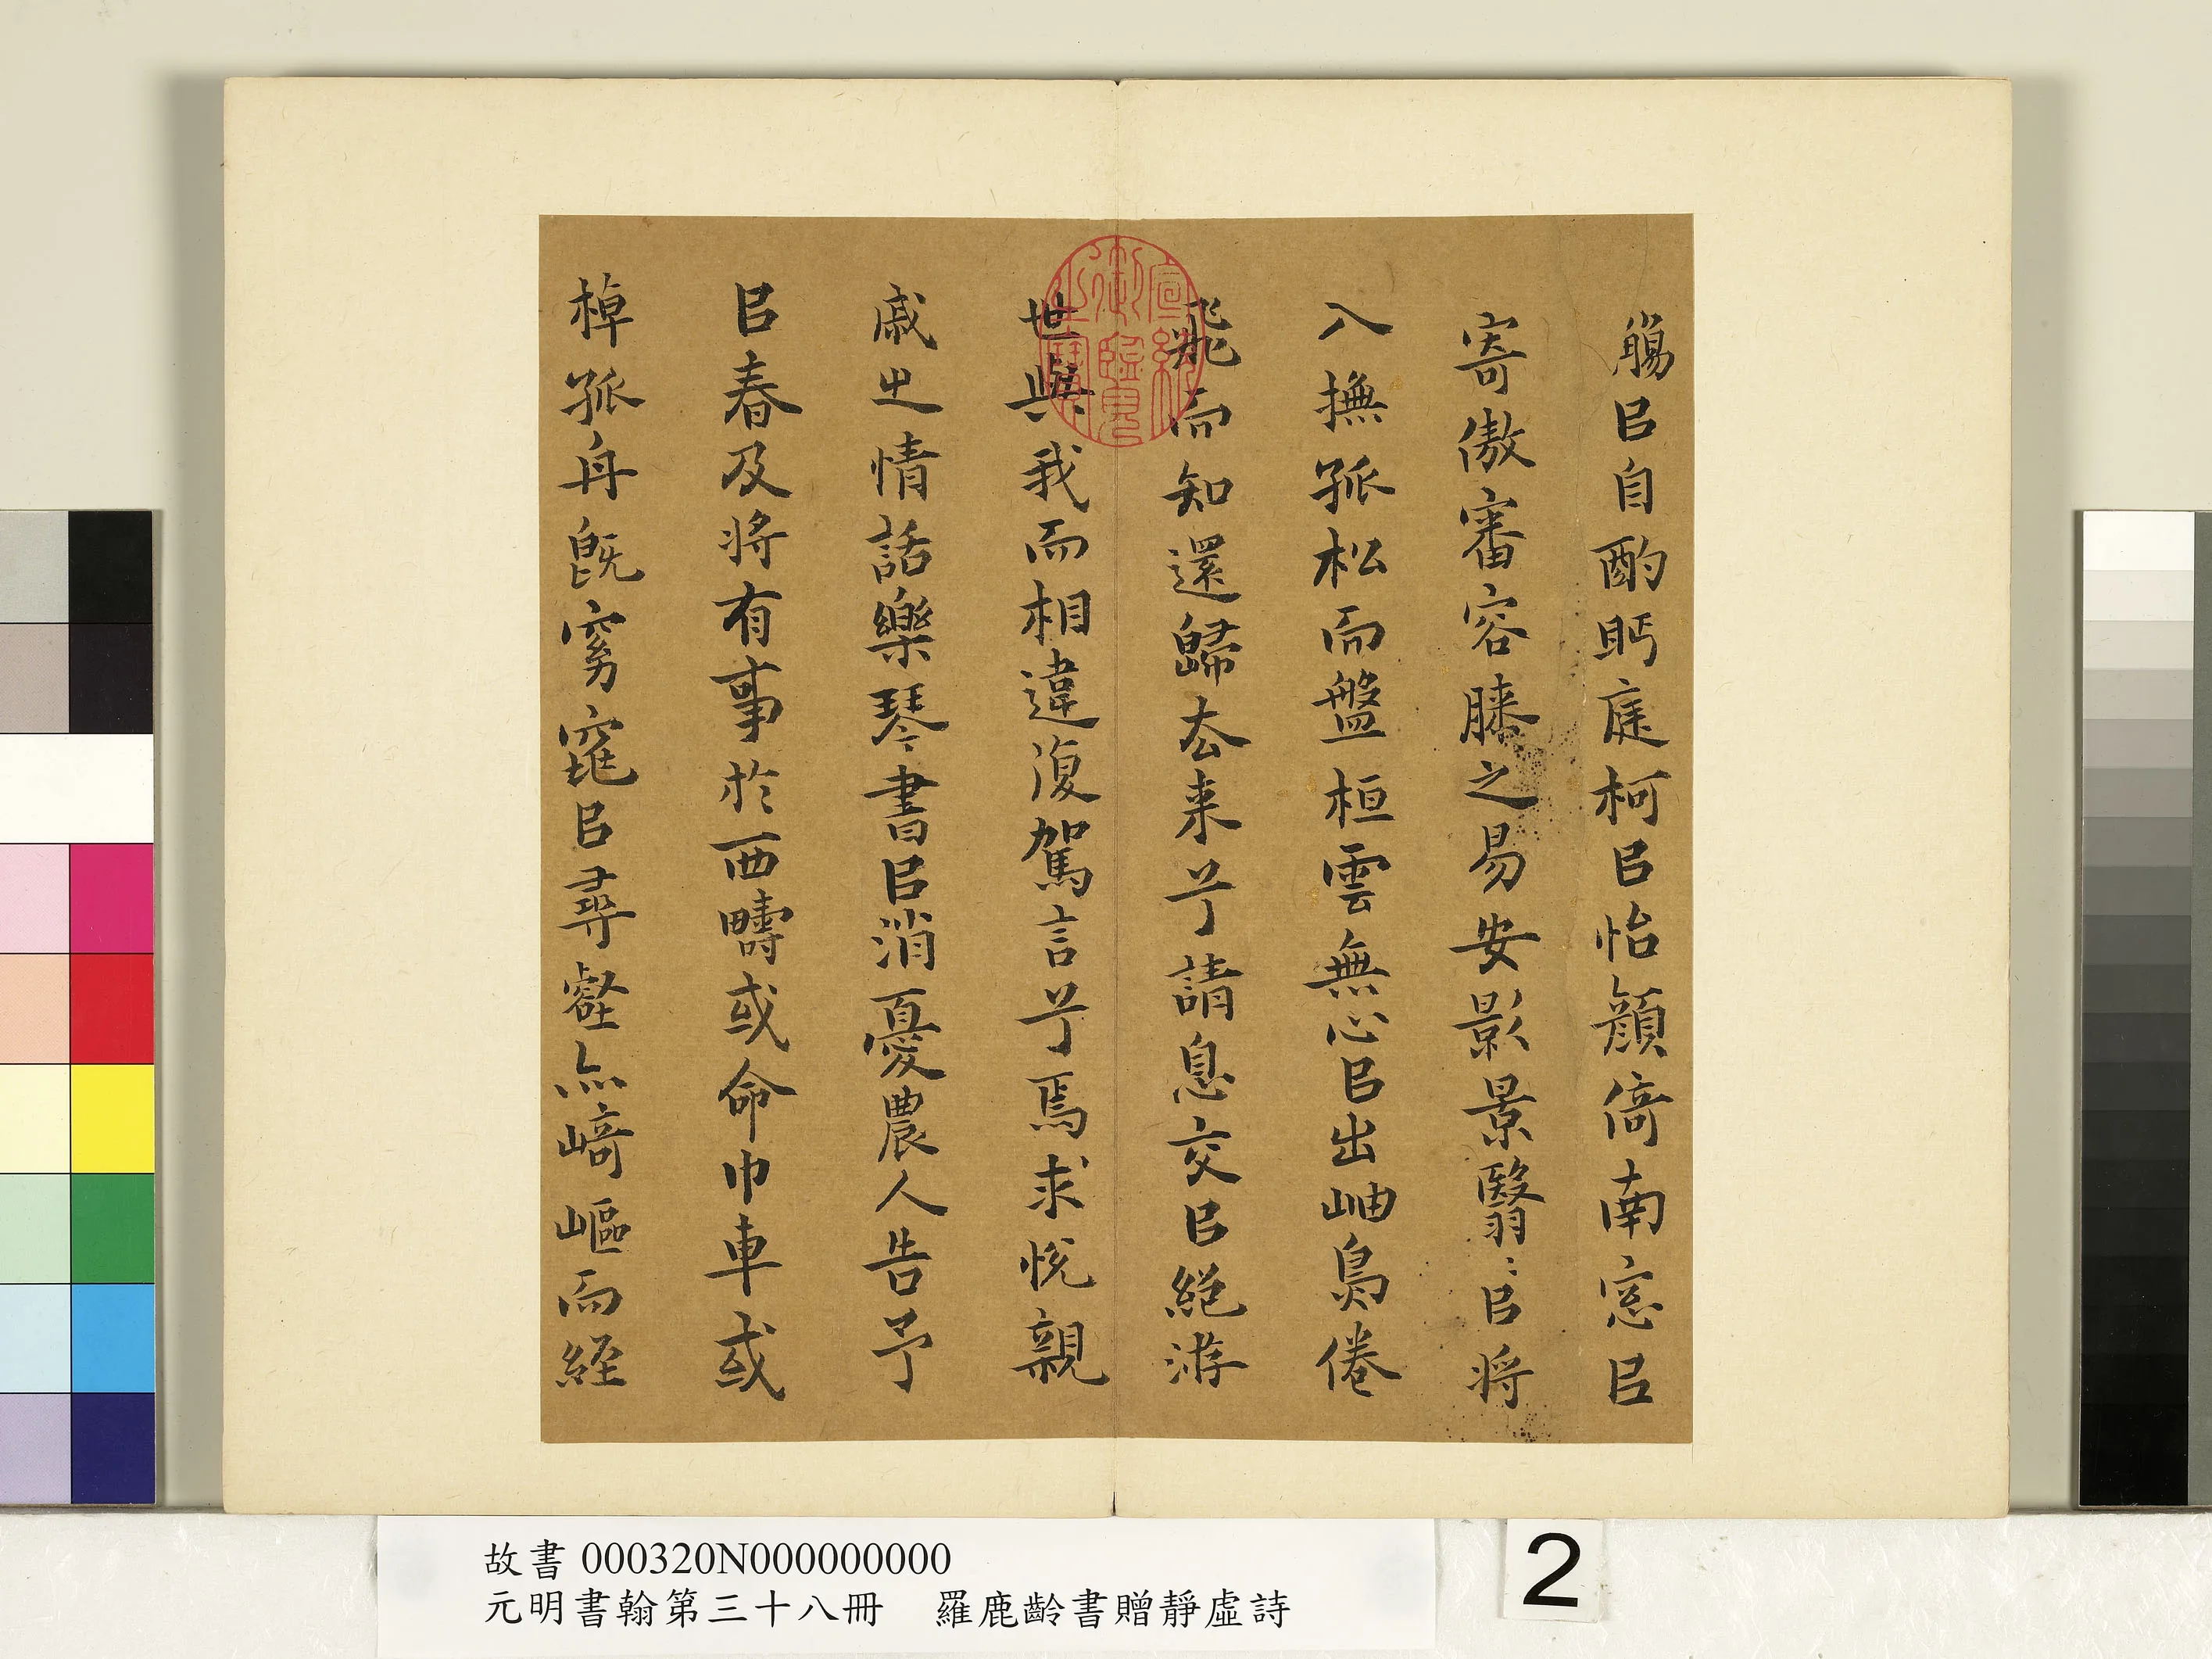 觴㠯自酌眄庭柯㠯怡顔倚南窓㠯
寄傲審容膝之易安影景翳〻㠯将
入撫孤松而盤桓雲無心㠯出岫鳥倦
飛而知還歸去来兮請息交㠯絕游
世與我而相違復駕言兮焉求悅親
戚之情話樂琴書㠯消憂農人告予
㠯春及将有事於西疇或命巾車或
棹孤舟既窈窕㠯尋壑亦崎嶇而経
宣統御覽之寶
故書 000320N000000000
元明書翰第三十八冊 羅鹿齡書贈靜虛詩
2